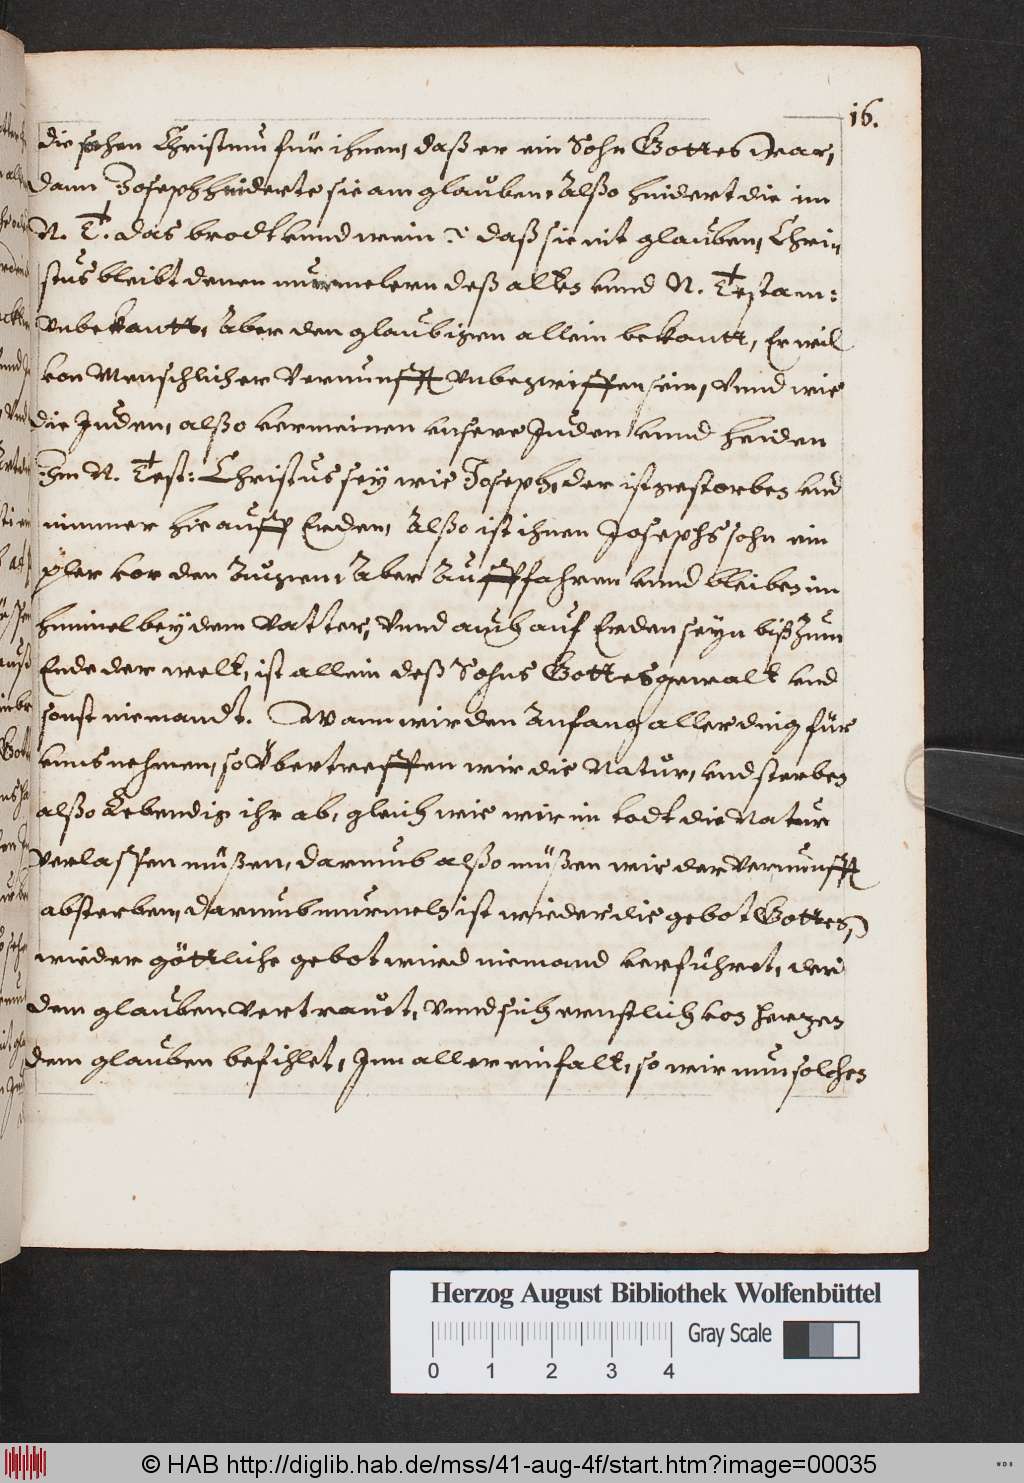 16.
die sehen Christum für ihnen, daß er ein Sohn Gottes war,
dann Joseph hinderte sie am glauben, Alßo hindert die im
N. T. das brodt vnnd wein daß sie nit glauben, Chri-
stus bleibt denen murmelern deß alten vnnd N. Testam:
Vnbekantt, Aber den glaubigen allein bekantt, Er wil
von Menschlicher Vernunfft Vnbegriffen sein, Vnnd wie
die Juden, alßo vermeinen vnsere Juden vnnd heiden
Im N. Test: Christus sey wie Joseph, der ist gestorben vnd
nimmer hie auff Erden, Alßo ist ihnen Josephs sohn ein
vor den Augen, Aber Auffahren vnnd bleiben im
himmel bey dem Vatter, Vnnd auch auf Erden seyn biß Zum
Ende der welt, ist allein deß Sohns Gottes gewalt vnd
sonst niemandt. Wann wir den Anfang aller ding für
vnns nehmen, so Vbertreffen wir die Natur, vnd sterben
alßo Lebendig ihr ab, gleich wie wir im todt die Natur
Verlassen müßen, darumb alßo müßen wir der Vernunfft
absterben, darumb murmeln ist wieder die gebot Gottes,
wieder göttliche gebot wird niemand verführet, der
dem glauben Vertrauet, Vnnd sich ernstlich von herzen
dem glauben befihlet, Inn aller einfalt, so wir nun solchen
Herzog August Bibliothek Wolfenbüttel
Gray Scale
0 1 2 3 4
© HAB http://diglib.hab.de/mss/41-aug-4f/start.htm?image=00035